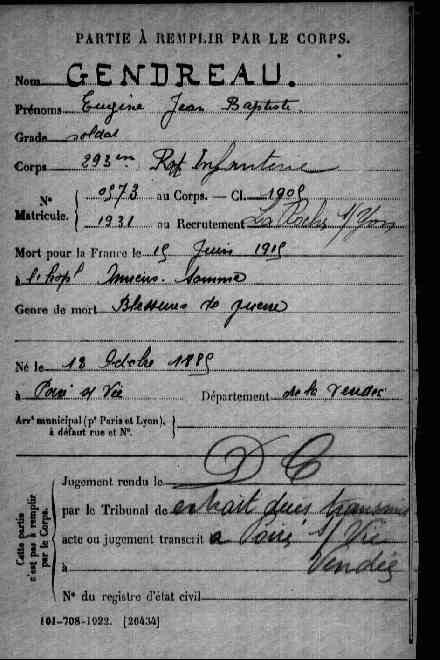 PARTIE À REMPLIR PAR LE CORPS.
Nom GENDREAU.
Prénoms Eugène Jean Baptiste
Grade soldat
Corps 293em Rgt Infanterie
N° Matricule. { 0973 au Corps. — Cl. 1905
1931 au Recrutement La Roche s/Yon
Mort pour la France le 15 Juin 1915
à l'hopl Amiens. Somme
Genre de mort Blessures de guerre
Né le 13 Octobre 1885
à Poiré s/ Vie Département de la Vendée
Arrt municipal (pr Paris et Lyon), à défaut rue et N°. }
Cette partie n'est pas à remplir par le Corps.
D C
Jugement rendu le
par le Tribunal de extrait transmis
acte ou jugement transcrit a Poiré s/ Vie
à Vendée
N° du registre d'état civil
101-708-1922. [26434]